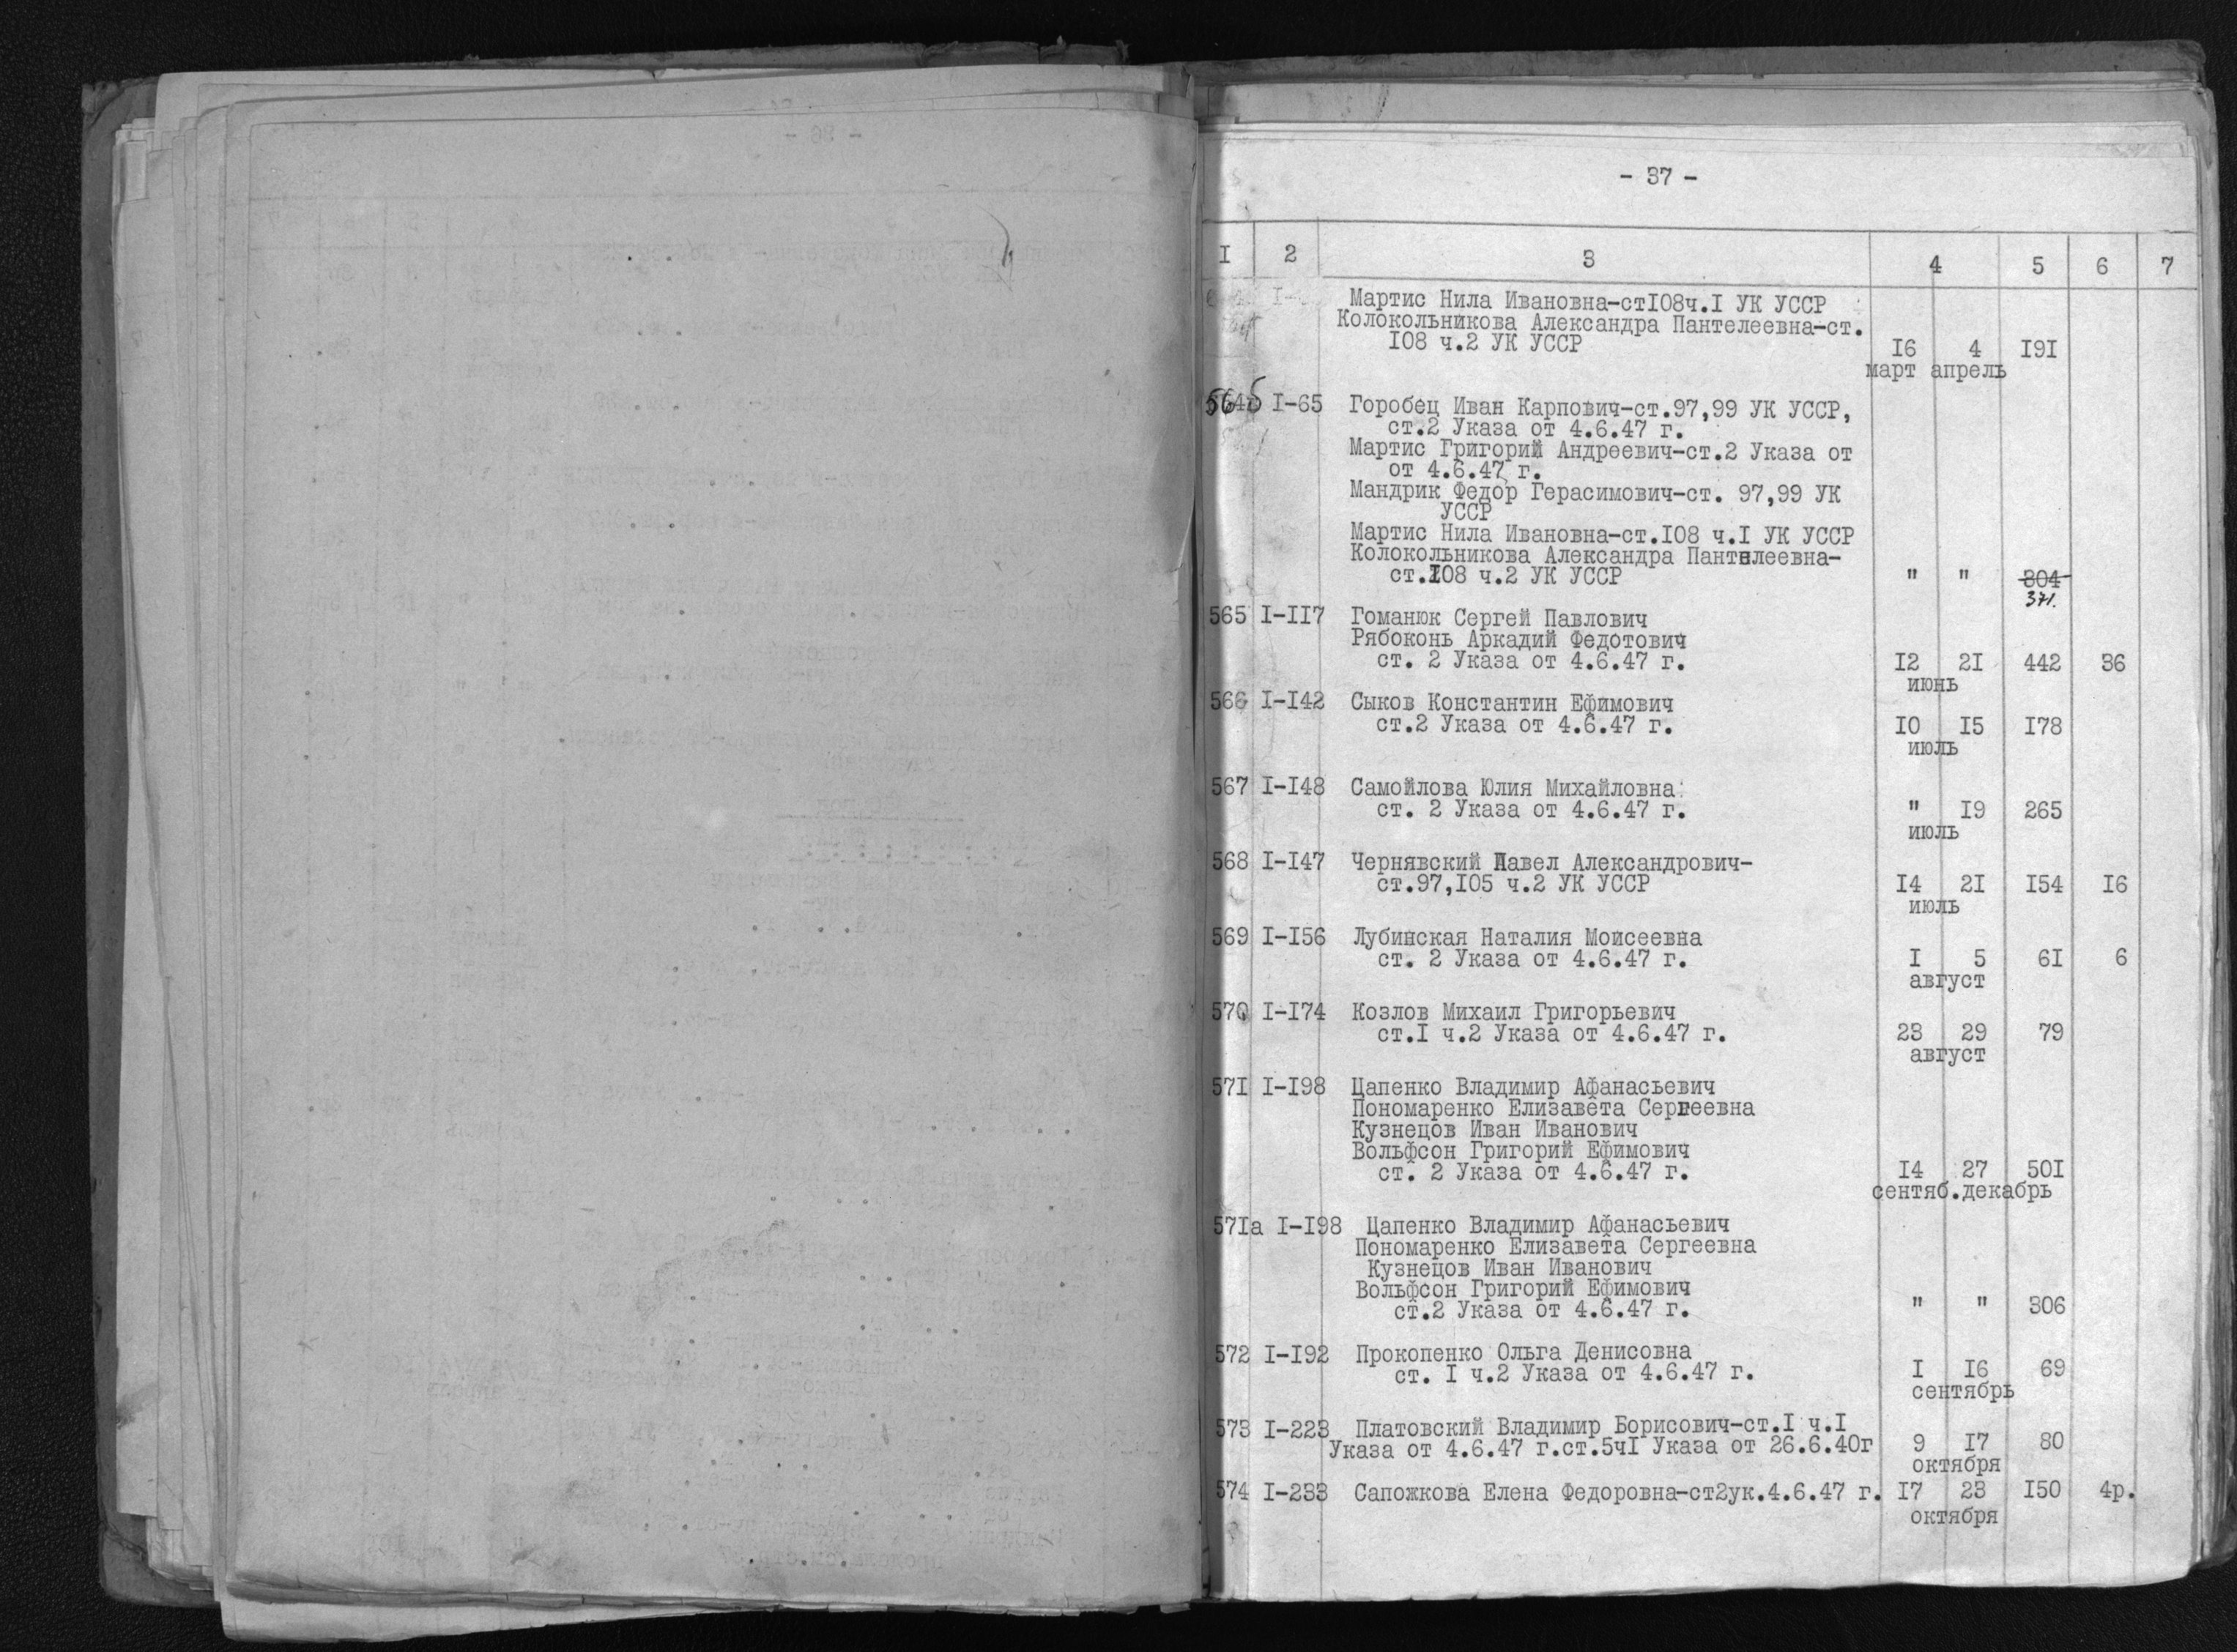 - 37 -
I 2 3 4 5 6 7
Мартис Нила Ивановна-стI08ч.I УК УССР
Колокольникова Александра Пантелеевна-ст.
I08 ч.2 УК УССР 16 4 I9I
март апрель
I-65 Горобец Иван Карпович-ст.97,99 УК УССР,
ст.2 Указа от 4.6.47 г.
Мартис Григорий Андреевич-ст.2 Указа от
от 4.6.47 г.
Мандрик Федор Герасимович-ст. 97,99 УК
УССР
Мартис Нила Ивановна-ст.I08 ч.I УК УССР
Колокольникова Александра Пантелеевна-
ст.I08 ч.2 УК УССР " " 304
371.
565 I-II7 Гоманюк Сергей Павлович
Рябоконь Аркадий Федотович
ст. 2 Указа от 4.6.47 г. I2 2I 442 36
июнь
566 I-I42 Сыков Константин Ефимович
ст.2 Указа от 4.6.47 г. I0 I5 I78
июль
567 I-I48 Самойлова Юлия Михайловна
ст. 2 Указа от 4.6.47 г. " I9 265
июль
568 I-I47 Чернявский Павел Александрович-
ст.97,I05 ч.2 УК УССР I4 2I I54 I6
июль
569 I-I56 Лубинская Наталия Моисеевна
ст. 2 Указа от 4.6.47 г. I 5 6I 6
август
570 I-I74 Козлов Михаил Григорьевич
ст.I ч.2 Указа от 4.6.47 г. 23 29 79
август
57I I-I98 Цапенко Владимир Афанасьевич
Пономаренко Елизавета Сергеевна
Кузнецов Иван Иванович
Вольфсон Григорий Ефимович
ст. 2 Указа от 4.6.47 г. I4 27 50I
сентяб.декабрь
57Iа I-I98 Цапенко Владимир Афанасьевич
Пономаренко Елизавета Сергеевна
Кузнецов Иван Иванович
Вольфсон Григорий Ефимович
ст.2 Указа от 4.6.47 г. " " 306
572 I-I92 Прокопенко Ольга Денисовна
ст. I ч.2 Указа от 4.6.47 г. I I6 69
сентябрь
573 I-223 Платовский Владимир Борисович-ст.I ч.I
Указа от 4.6.47 г.ст.5чI Указа от 26.6.40г 9 I7 80
октября
574 I-233 Сапожкова Елена Федоровна-ст2ук.4.6.47 г. I7 23 I50 4р.
октября